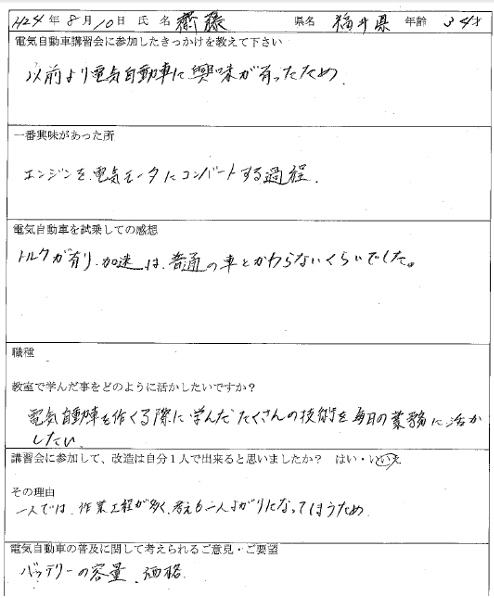 H24年8月10日 氏名 齋藤 県名 福井県 年齢 34才
電気自動車講習会に参加したきっかけを教えて下さい
以前より電気自動車に興味が有ったため
一番興味があった所
エンジンを、電気モータにコンバートする過程.
電気自動車を試乗しての感想
トルクが有り、加速は、普通の車とかわらないくらいでした。
職種
教室で学んだ事をどのように活かしたいですか？
電気自動車を作くる際に学んだたくさんの技術を毎日の業務に活か
したい
講習会に参加して、改造は自分１人で出来ると思いましたか？ はい・いいえ
その理由
一人では、作業工程が多く、考えも一人よがりになってしまうため
電気自動車の普及に関して考えられるご意見・ご要望
バッテリーの容量、価格